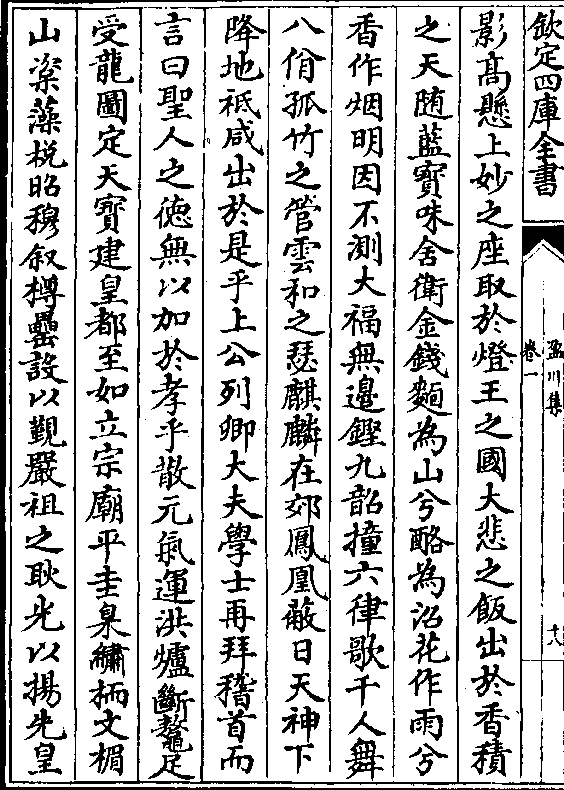 欽定四庫全書
盈川集
卷一
十八
影髙懸上妙之座取於燈王之國大悲之飯出於香積
之天随藍寳味舍衛金錢麵為山兮酪為沼花作雨兮
香作烟明因不測大福無邊鏗九韶撞六律歌千人舞
八佾孤竹之管雲和之瑟麒麟在郊鳳凰蔽日天神下
降地祗咸出於是乎上公列卿大夫學士再拜稽首而
言曰聖人之徳無以加於孝乎散元氣運洪爐斷鼇足
受龍圖定天寳建皇都至如立宗廟平圭臬繡栭文楣
山楶藻棁昭穆叙樽罍設以觐嚴祖之耿光以揚先皇